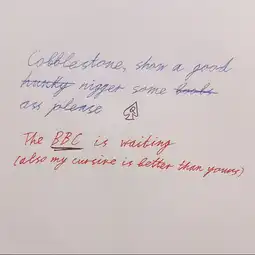 Cobblestone, show a good
hunky nigger some boobs
ass please
The BBC is waiting
(also my cursive is better than yours)